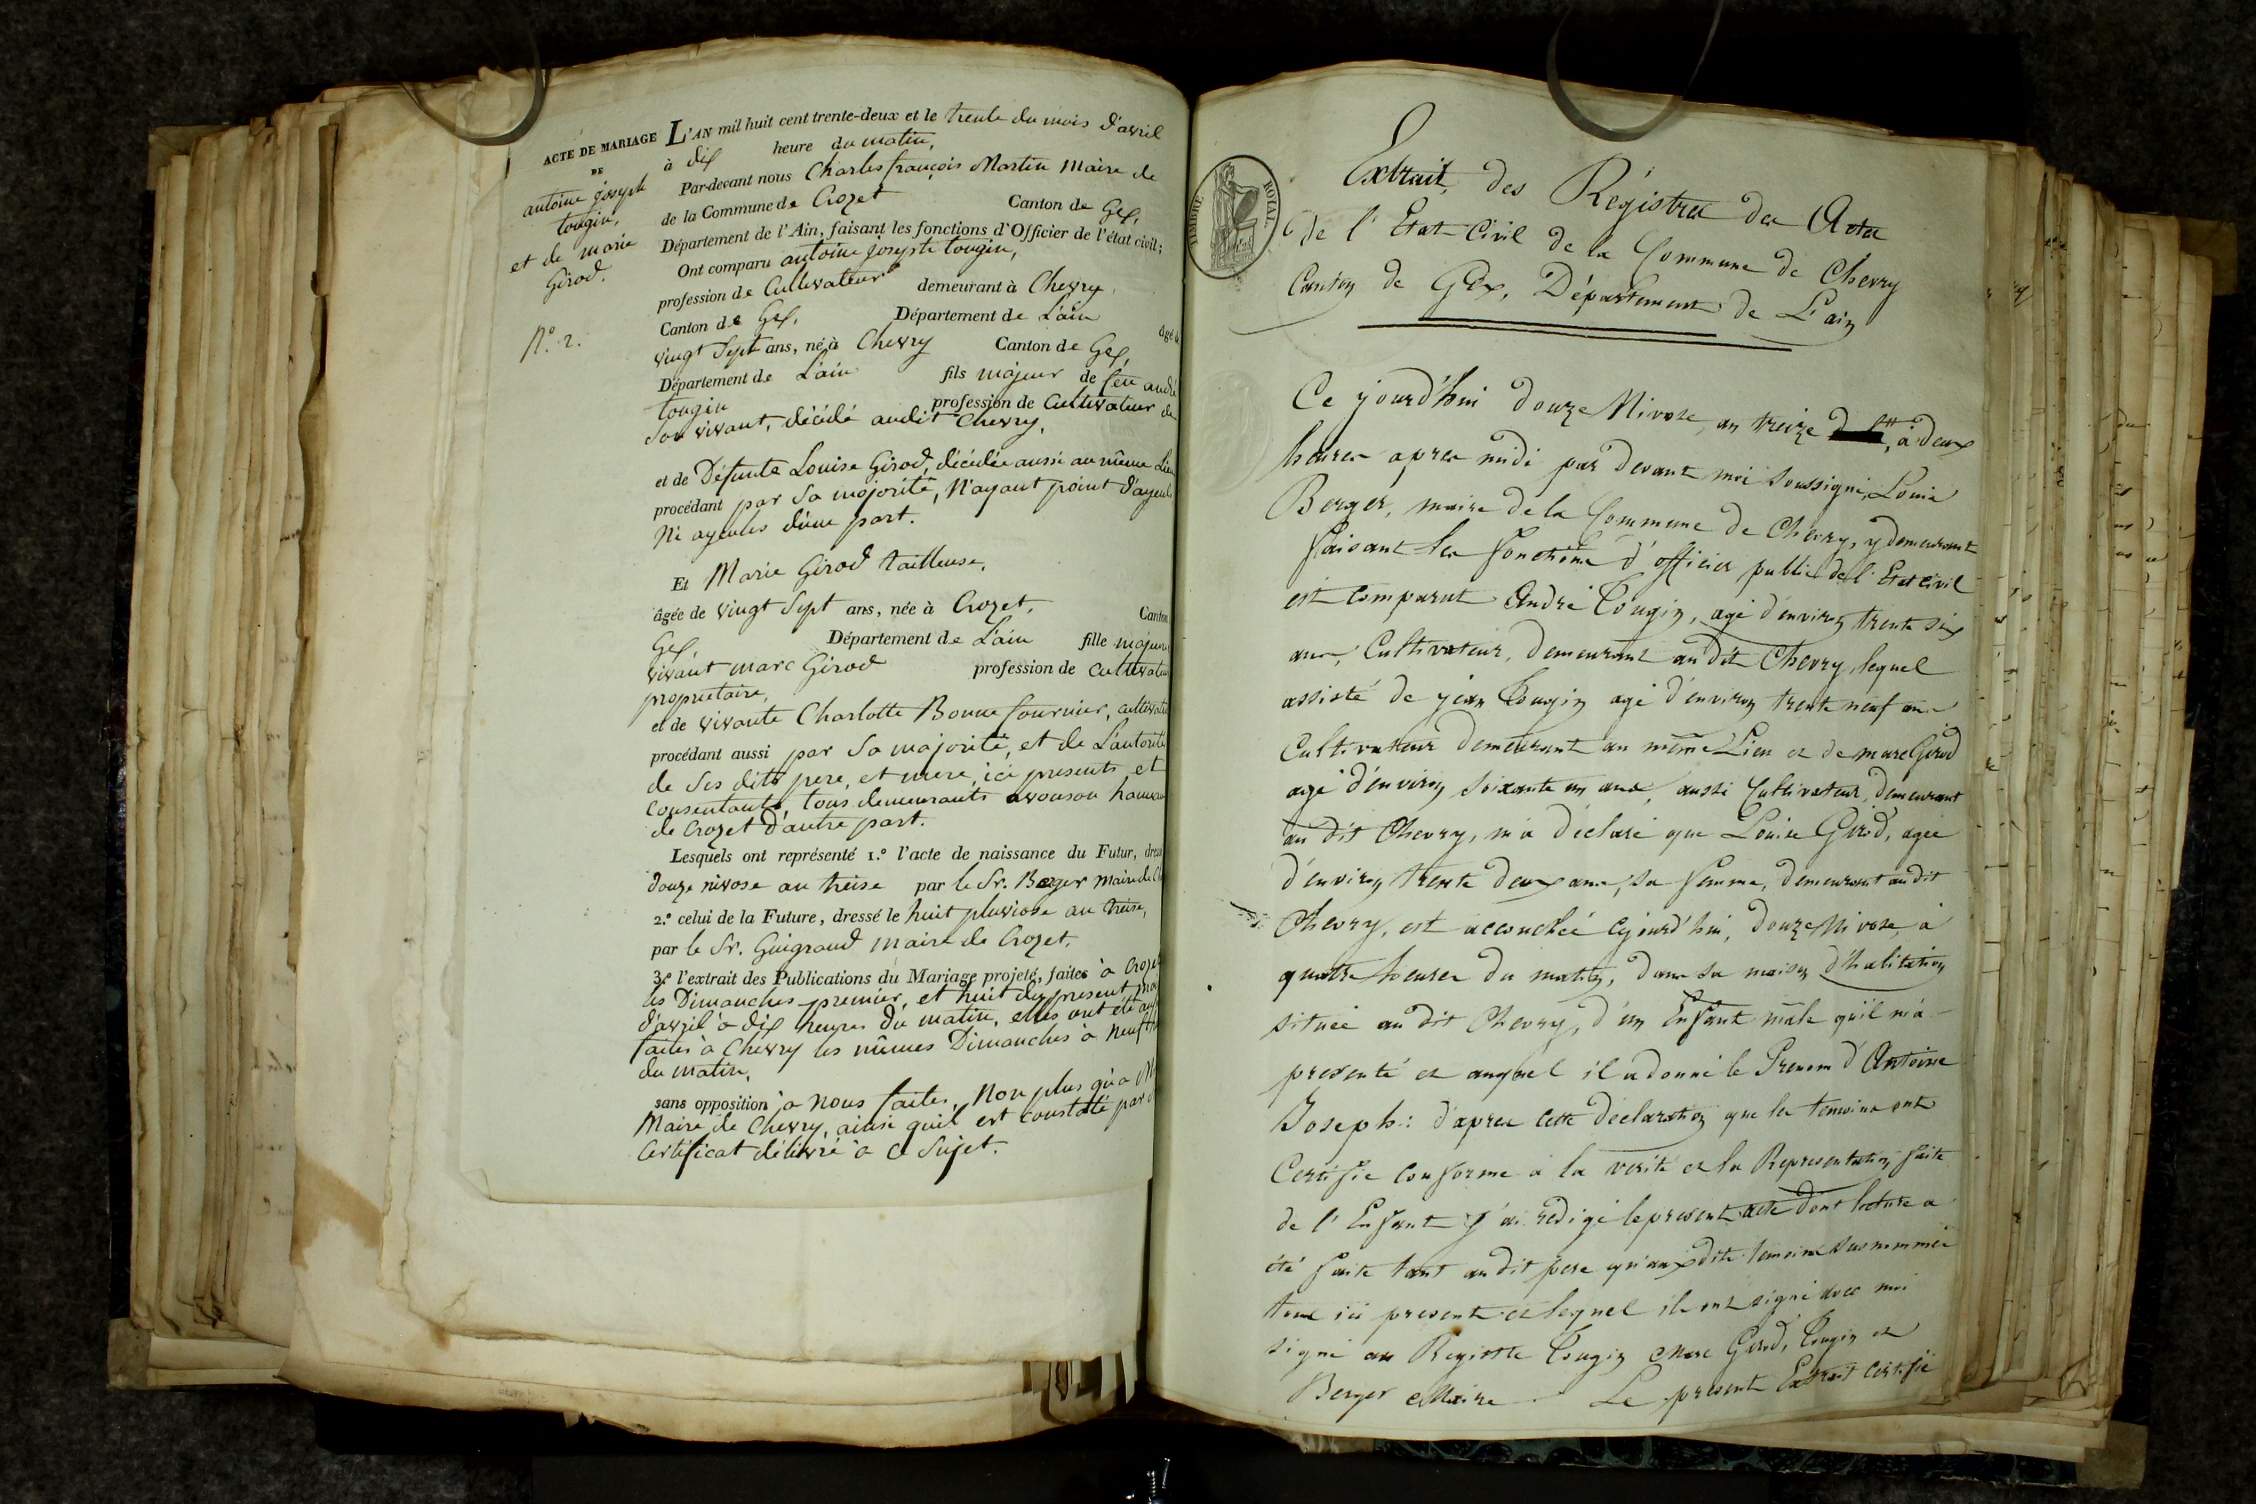 ACTE DE MARIAGE
DE
antoine joseph
tougin,
et de marie
Girod.
N.º 2.
L'AN mil huit cent trente-deux et le trente du mois d'avril
à dix heure du matin,
Par-devant nous Charles françois Martin Maire de
de la Commune de Crozet Canton de Gex,
Département de l'Ain, faisant les fonctions d'Officier de l'état civil;
Ont comparu antoine joseph tougin,
profession de Cultivateur demeurant à Chevry,
Canton de Gex, Département de L'ain âgé de
vingt Sept ans, né à Chevry Canton de Gex,
Département de L'ain fils majeur de feu andré
tougin profession de Cultivateur de
Son vivant, décédé audit Chevry,
et de Défunte Louise Girod, décédée aussi au même Lieu
procédant par Sa majorité, N'ayant point d'ayeuls
Ni ayeules d'une part.
Et Marie Girod tailleuse,
âgée de vingt Sept ans, née à Crozet, Canton
Gex Département de L'ain fille majeure
vivant marc Girod profession de Cultivateur
proprietaire,
et de vivante Charlotte Bonne fournier, cultivat
procédant aussi par Sa majorité, et de L'autorité
de Ses dits pere, et mere, ici presents et
Consentants, tous demeurants avouson hameau
de Crozet d'autre part.
Lesquels ont représenté 1.º l'acte de naissance du Futur, dressé
douze nivose an treise par le Sr. Berger Maire de Ch
2.º celui de la Future, dressé le huit pluviose an treise,
par le Sr. Guigraud Maire de Crozet,
3.º l'extrait des Publications du Mariage projeté, faites à Crozet
les Dimanches premier, et huit du present mois
d'avril à dix heures du matin, elles ont été aussi
faites à Chevry les mêmes Dimanches à neuf h
du matin,
sans opposition à nous faites, Non plus qu'a M
Maire de Chevry, ainsi qu'il est constaté par
Certificat délivré à ce Sujet.
TIMBRE ROYAL
Extrait des Régistres des Actes
de l'Etat Civil de la Commune de Chevry
Canton de Gex, Département de L'ain
Ce yjourd'hui douze Nivose, an treize, à deux
heures apres midi par devant moi Soussigné, Louis
Berger, maire de la Commune de Chevry, y demeurant
faisant les fonctions d'officier public de l'Etat civil
est Comparut André Tougin, agé d'environ trente six
ans, Cultivateur, demeurant au dit Chevry, lequel
assisté de jean Tougin agé d'environ trente neuf ans
Cultivateur demeurant au même Lieu et de marc Girod
agé d'environ soixante un ans, aussi Cultivateur, demeurant
au dit Chevry, m'a déclaré que Louise Girod, agée
d'environ trente deux ans, sa femme, demeurant au dit
Chevry, est accouchée cejourd'hui, douze Nivose, à
quatre heures du matin, dans sa maison d'habitation
située au dit Chevry, d'un Enfant mâle qu'il m'a
presenté et auquel il a donné le Prenom d'Antoine
Joseph: d'apres cette déclaration que les temoins ont
Certifié Conforme à la verité et la Représentation faite
de l'Enfant J'ai rédigé le present acte dont lecture a
été faite tant au dit pere qu'aux dits temoins susnommés
tous ici presents et lequel ils ont signé avec moi
signé au Registre Tougin Marc Girod, Tougin et
Berger Maire. Le present Extrait Certifié